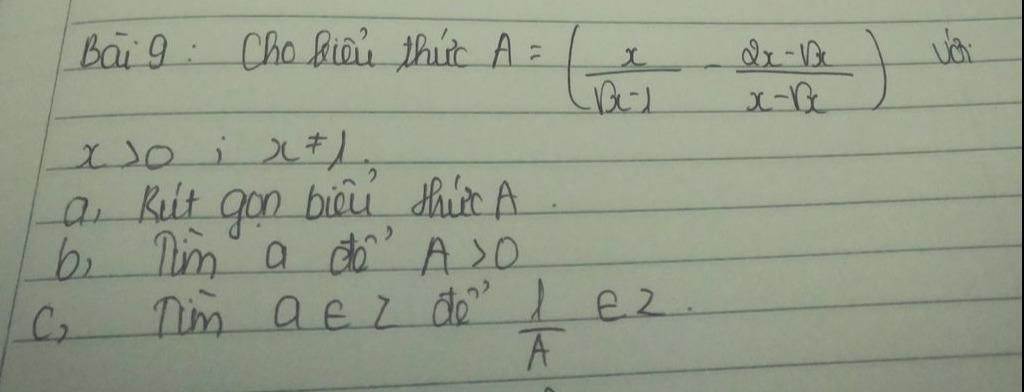 Bài 9 : Cho biểu thức A = ( x/(√x-1) - (2x-√x)/(x-√x) ) với
x>0 ; x≠1.
a, Rút gọn biểu thức A .
b, Tìm a để A>0
c, Tìm a ∈ Z để 1/A ∈ Z .